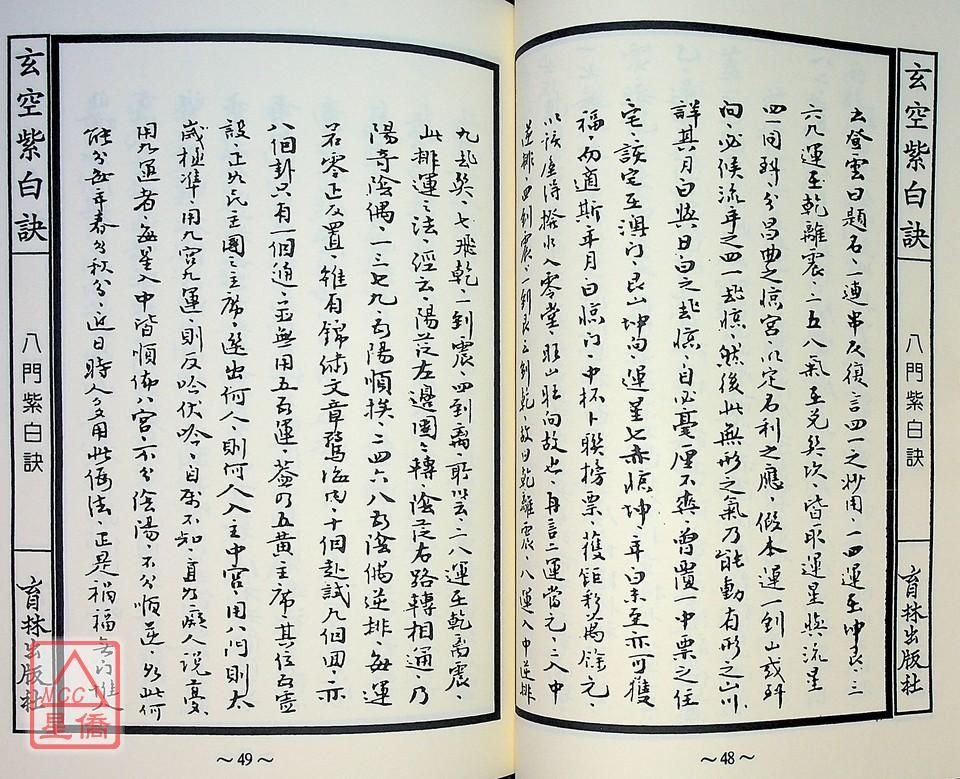 玄空紫白訣
八門紫白訣
育林出版社
云登雲曰題名一連串反復言四一之妙用一四運至坤艮三
六九運至乾離震二五八氣至兌巽坎皆取運星與流星
四一同到分昌曲之臨宮以定名利之應假本運一到山或到
向必候流年之四一起臨然後此無形之氣乃能動有形之山川
詳其月白與日白之起臨自必毫厘不爽曾買一中票之住
宅該宅在澳門艮山坤向運星七赤臨坤年白末至亦可獲
福而適斯年月白臨門中杯卜聯榜票獲鉅彩萬餘元
以該屋得撥水入零堂旺山旺向故也再言二運當元二入中
逆排四到震一到艮三到乾故曰乾離震八運入中逆排
~48~
九起巽七飛乾一到震四到離所以云二八運至乾离震
此排運之法經云陽從左邊團團轉陰從右路轉相通乃
陽奇陰偶一三七九為陽順挨二四六八為陰偶逆排每運
若零正反置雖有錦綉文章十個赴試九個回亦
八個卦只有一個通主無用五為運蓋乃五黃主席其位為虛
設正如民主國之主席選出何人則何人入主中宮用八門則太
歲極準用九宮九運則反吟伏吟自屬不知直如癡人說夢
用九運者每星入中皆順佈八宮不分陰陽不分順逆如此何
能分每年春分秋分近日時人多用此偽法正是禍福無門惟人
玄空紫白訣
八門紫白訣
育林出版社
~49~
MCC
星僑